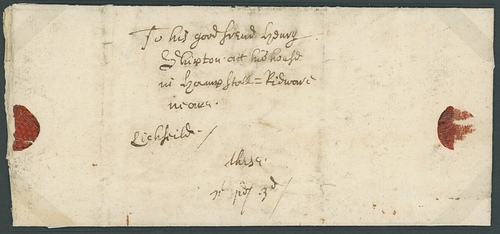 To his good frend Henry
Shipton att his house
in Hampstall = Ridware
neare
Lichfeild - /
These.
pd 3d /